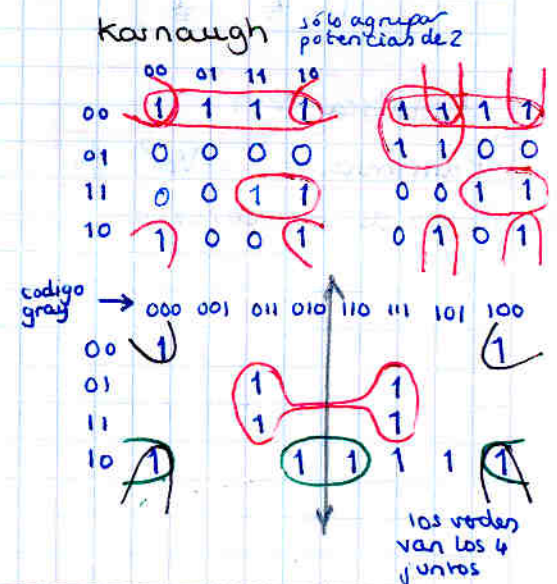 Karnaugh
sólo agrupar
potencias de 2
00 01 11 10
00 1 1 1 1 1 1 1 1
01 0 0 0 0 1 1 0 0
11 0 0 1 1 0 0 1 1
10 1 0 0 1 0 1 0 1
codigo
gray
000 001 011 010 110 111 101 100
00 1 1
01 1 1
11 1 1
10 1 1 1 1 1 1
los verdes
van los 4
juntos